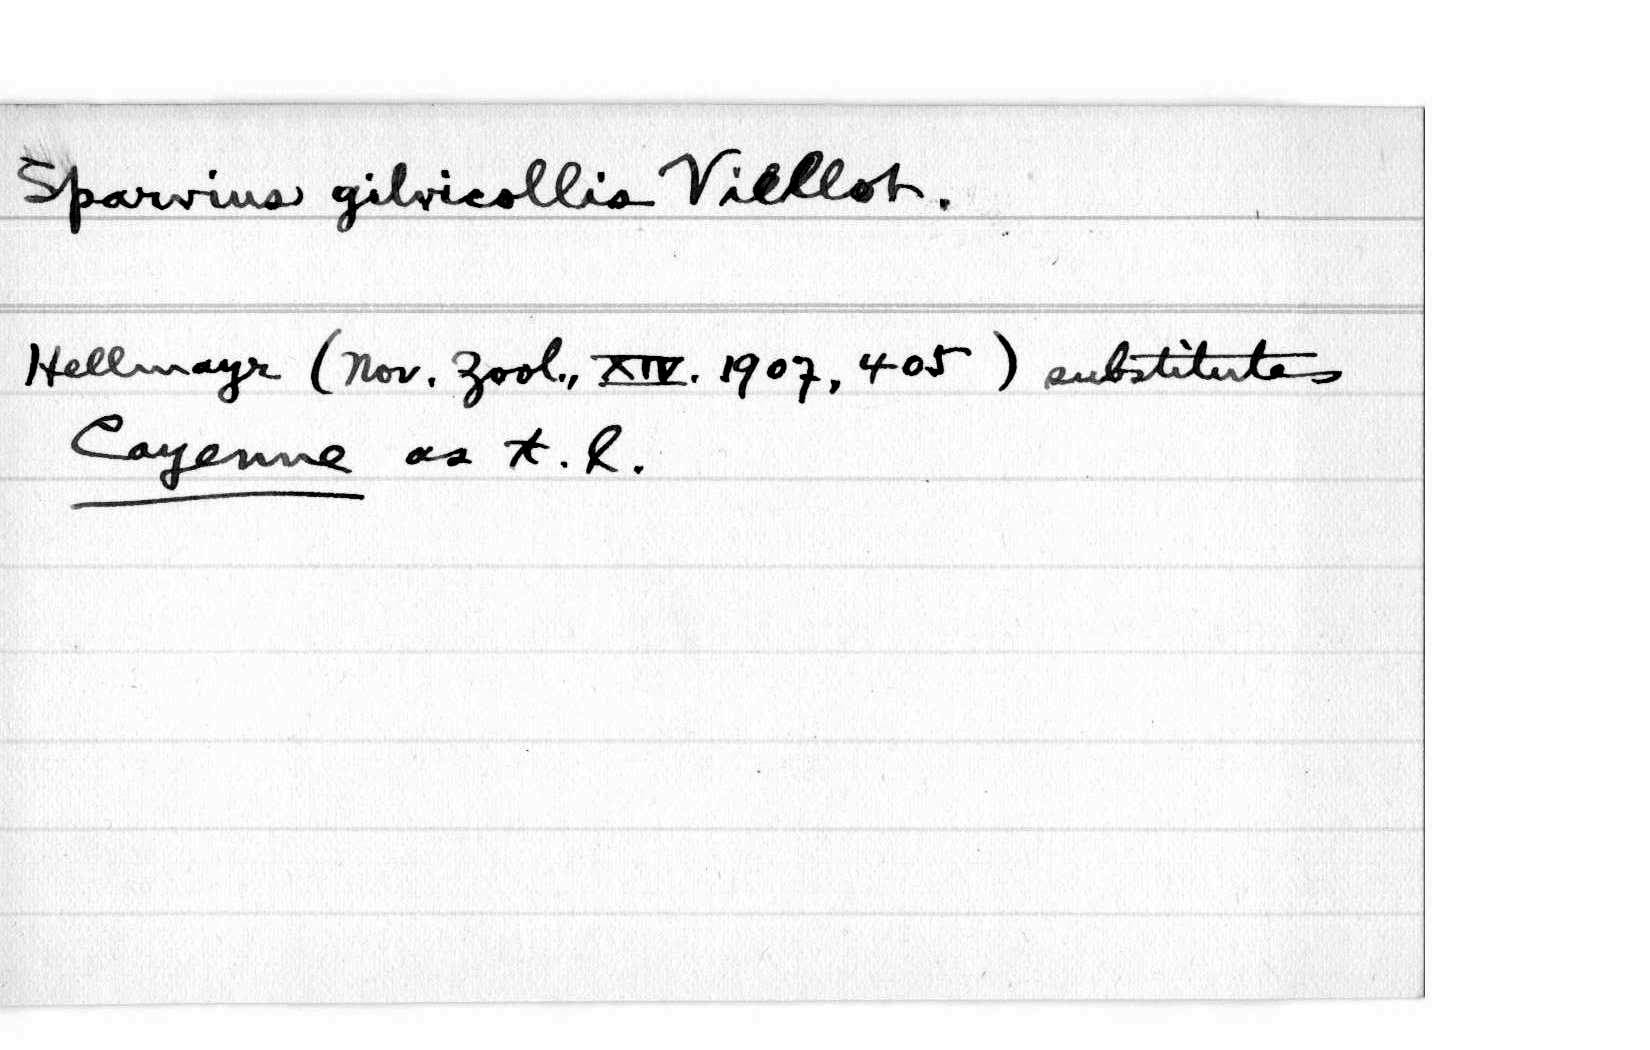 Sparvius gilvicollis Vieillot.
Hellmayr (Nov. Zool., XIV. 1907, 405) substitutes
Cayenne as t. l.